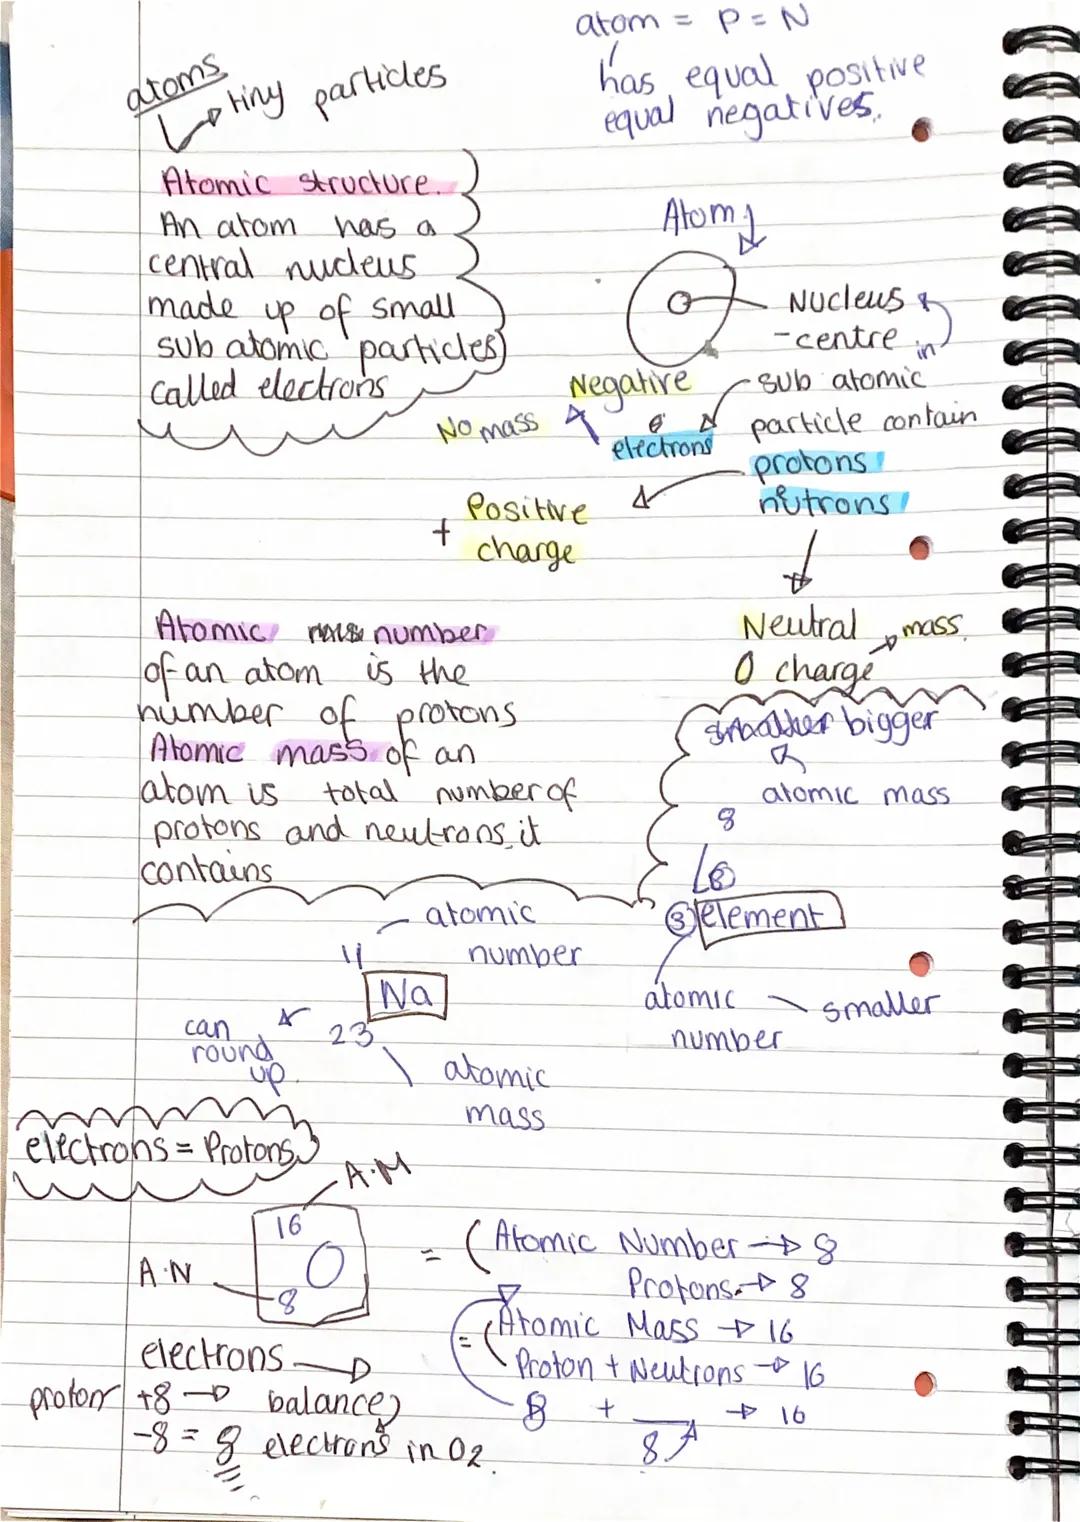 atom = P = N
has equal positive
equal negatives.
atoms
tiny particles
Atomic structure.
An atom has a
central nucleus
made up of small
sub atomic particles
called electrons
Atom
Nucleus
-centre
in
sub atomic
particle contain
protons
nutrons
Negative
No mass
e
electrons
+ Positive
charge
Neutral
mass.
0 charge
Atomic number
of an atom is the
number of protons
Atomic mass of an
atom is total number of
protons and neutrons it
contains
bigger
atomic mass
8
3 element
atomic
number
smaller
atomic
number
11
Na
23
can
round
up.
atomic
mass
electrons = Protons
A.M
16
O
A.N
8
= (Atomic Number → 8
Protons → 8
= (Atomic Mass → 16
Proton + Neutrons → 16
8 + __ → 16
8
electrons
proton +8 → balance
-8 = 8 electrons in O2.